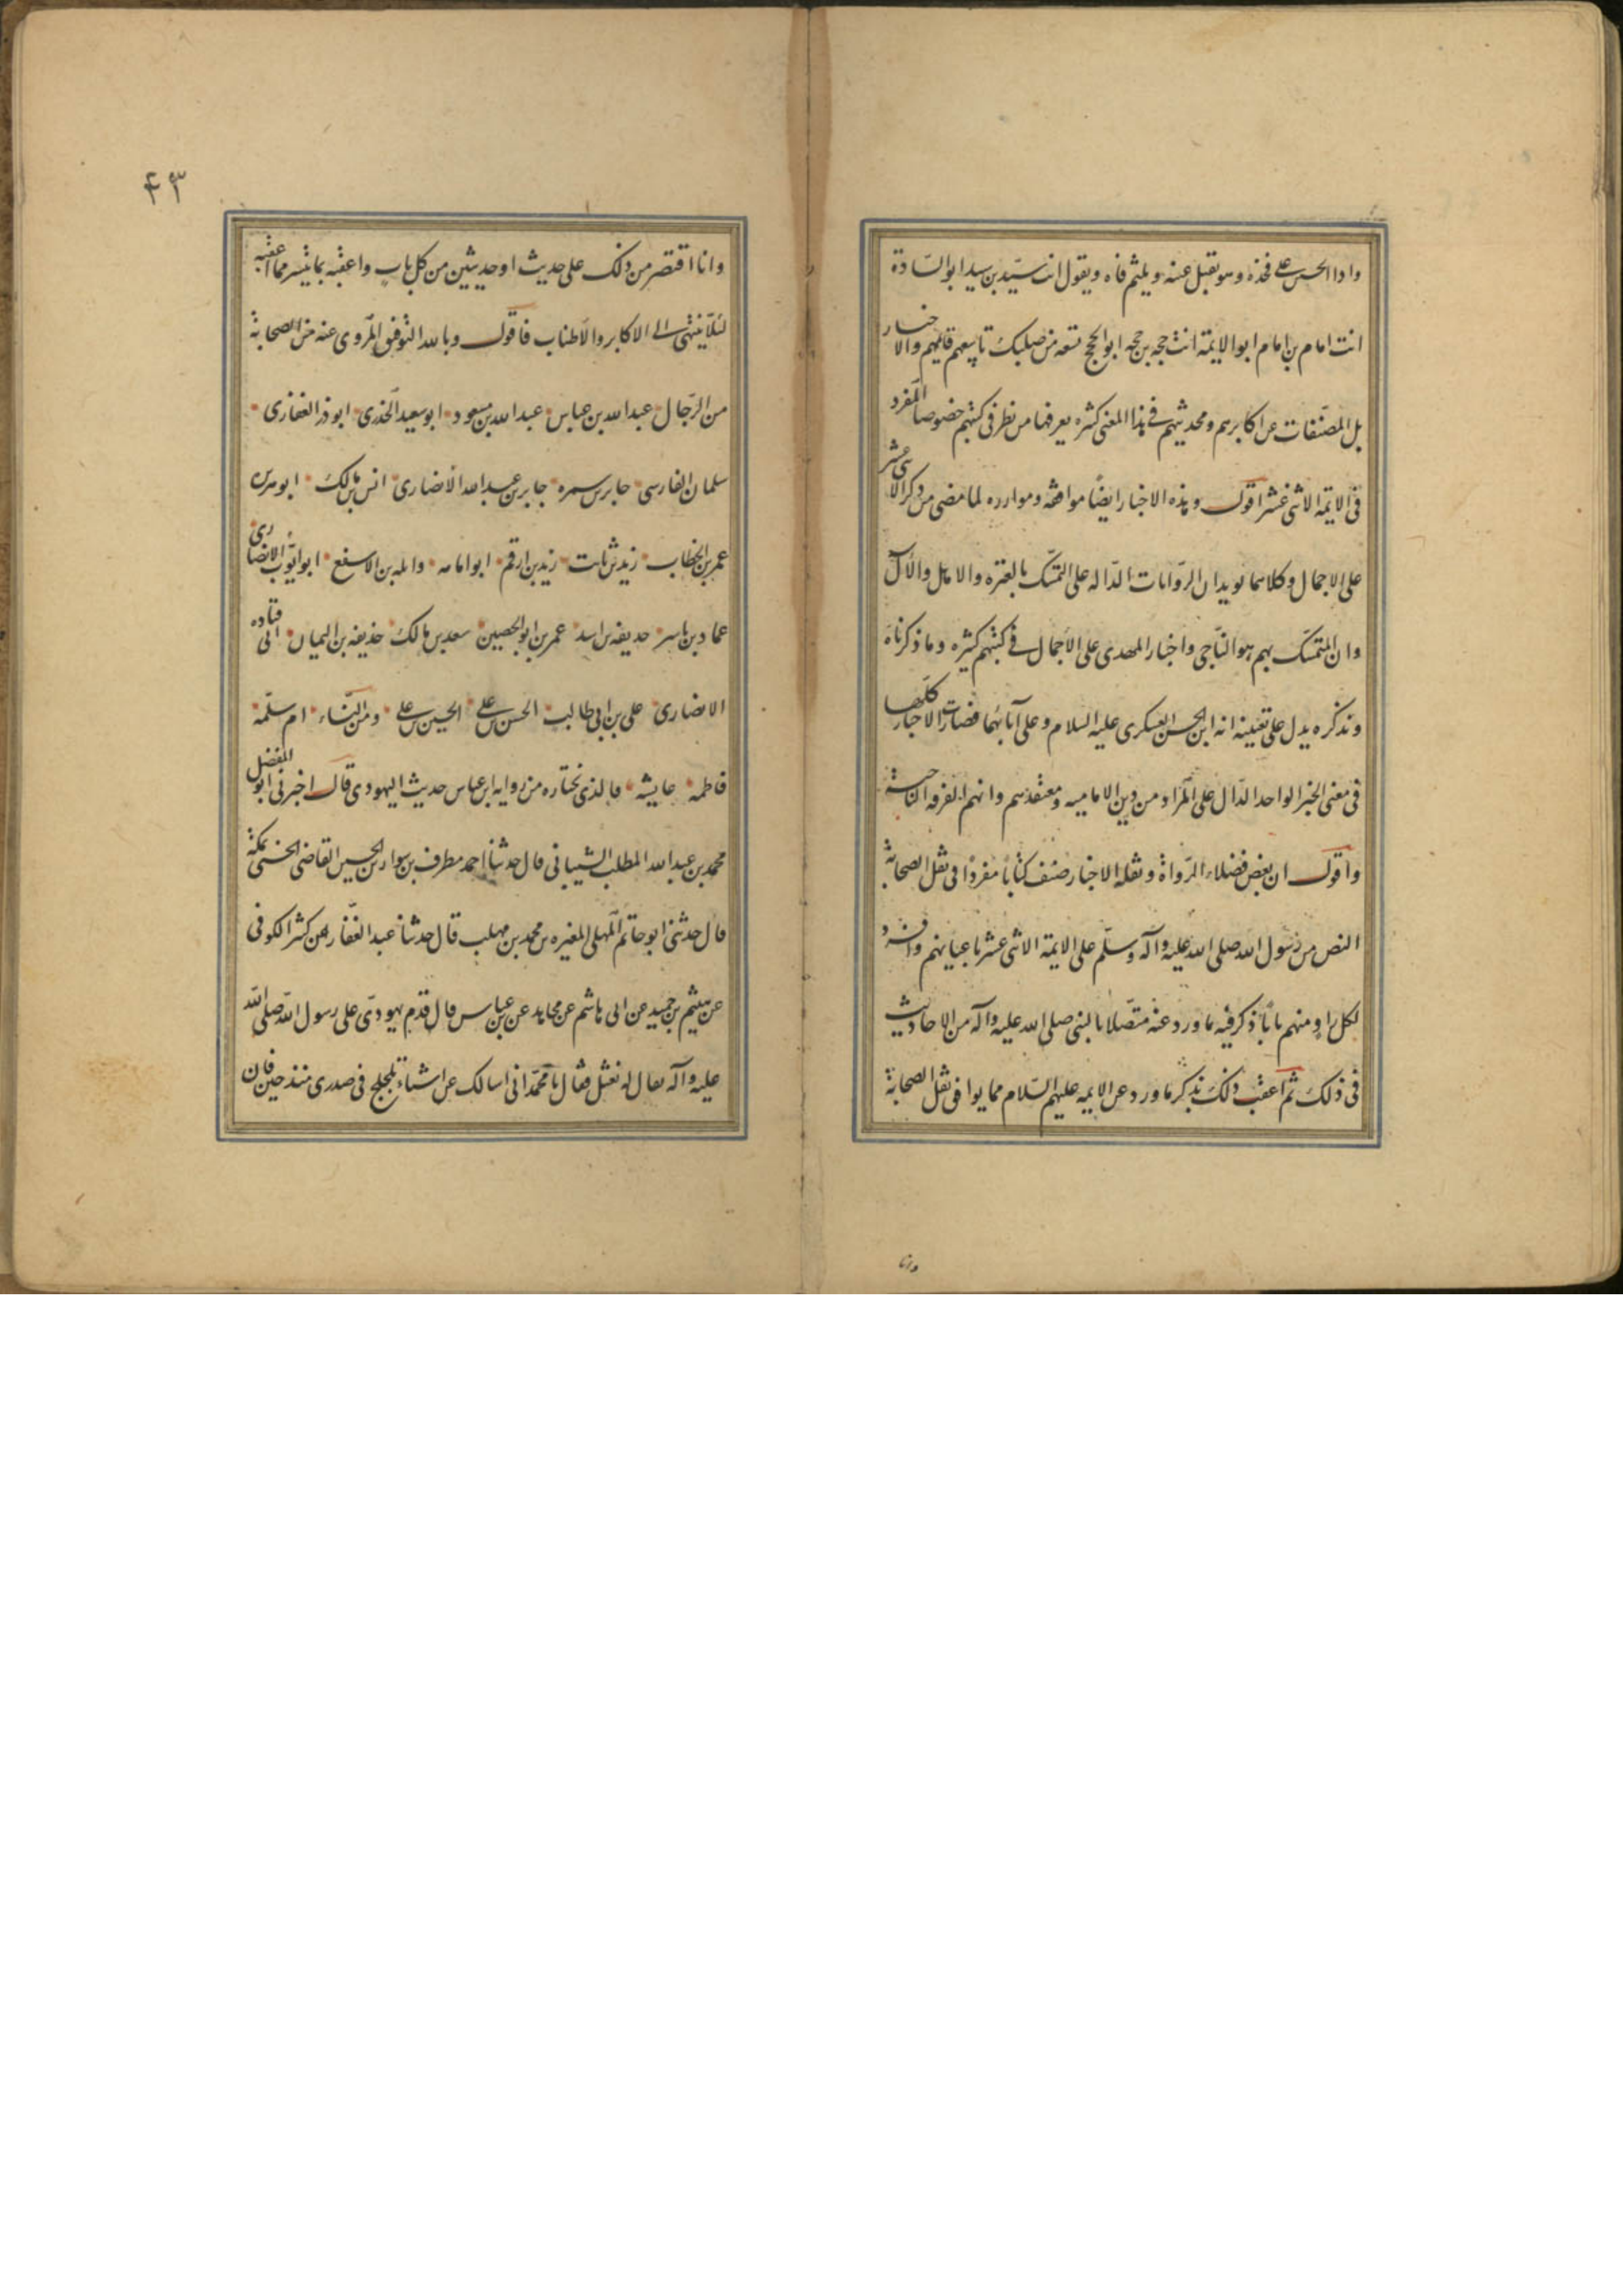 واذا الحسن على فخذه وهو تقبل عينيه ويلثم فاه ويقول انت سيّد بن سيد ابو السّادة
انت امام بن امام ابو الايمّة انت حجه بن حجه ابو الحجج تسعه من صلبك تاسعهم قايمهم والاخبار
بل المصنّفات عن اكابرهم ومحدثيهم فى هذا المعنى كثره يعرفها من نظر فى كتبهم خصوصا المفرد
فى الايمّه الاثنى عشر اقول وهذه الاخبار ايضاً موافقه وموارده لما مضى من ذكر الاثنى عشر
على الاجمال وكلاهما يويدان الرّوايات الدّاله على التمسّك بالعتره والاهل والآل
وان المتمسّك بهم هو النّاجى واخبار المهدى على الاجمال فى كتبهم كثيره وما ذكرناه
ونذكره يدل على تعيينه انه ابن الحسن العسكرى عليه السلام وعلى آبائهما فصارت الاخبار كلّها
فى معنى الخبر الواحد الدّال على المراد من دين الاماميه ومعتقدهم وانهم الفرقه الناجية
واقول ان بعض فضلاء الرّواة ونقله الاخبار صنف كتاباً مفردًا فى نقل الصحابة
النص من رسول الله صلى الله عليه وآله وسلّم على الايمّة الاثنى عشر باعيانهم وافرد
لكل راو منهم باباً ذكر فيه ما ورد عنه متّصلا بالنبى صلى الله عليه وآله من الاحاديث
فى ذلك ثم اعقب ذلك بذكر ما ورد عن الايمه عليهم السّلام مما يوافى نقل الصحابة
وانا
٤٣
وانا اقتصر من ذلك على حديث او حديثين من كل باب واعقبه بما تيسر مما اعقبه
لئلّا ينتهى الى الاكابر والاطناب فاقول وبالله التوفيق المروى عنه من الصحابة
من الرّجال عبد الله بن عباس عبد الله بن مسعود ابو سعيد الخدرى ابو ذر الغفارى
سلمان الفارسى جابر بن سمره جابر بن عبد الله الانصارى انس بن مالك ابو هريره
عمر بن الخطاب زيد بن ثابت زيد بن ارقم ابو امامه واثله بن الاسقع ابو ايّوب الانصارى
عمار بن ياسر حذيفه بن اسد عمر بن ابو الحصين سعد بن مالك حذيفه بن اليمان ابى قتاده
الانصارى على بن ابى طالب الحسن بن على الحسين بن على ومن النّساء ام سلّمة
فاطمه عايشه فالذى نختاره من روايه ابن عباس حديث اليهودى قال اخبرنى ابو المفضل
محمد بن عبد الله المطلب الشيبانى قال حدثنا احمد مطرف بن سوار بن الحسين القاضى الحسنى بمكة
قال حدثنى ابو حاتم المهلبى المغيره بن محمد بن مهلب قال حدثنا عبد الغفّار بن كثير الكوفى
عن هيثم بن حميد عن ابى هاشم عن مجاهد عن بن عباس قال قدم يهودىّ على رسول الله صلى الله
عليه وآله يقال له نعثل فقال يا محمّد انى اسالك عن اشياء تلجلج فى صدرى منذ حين فان